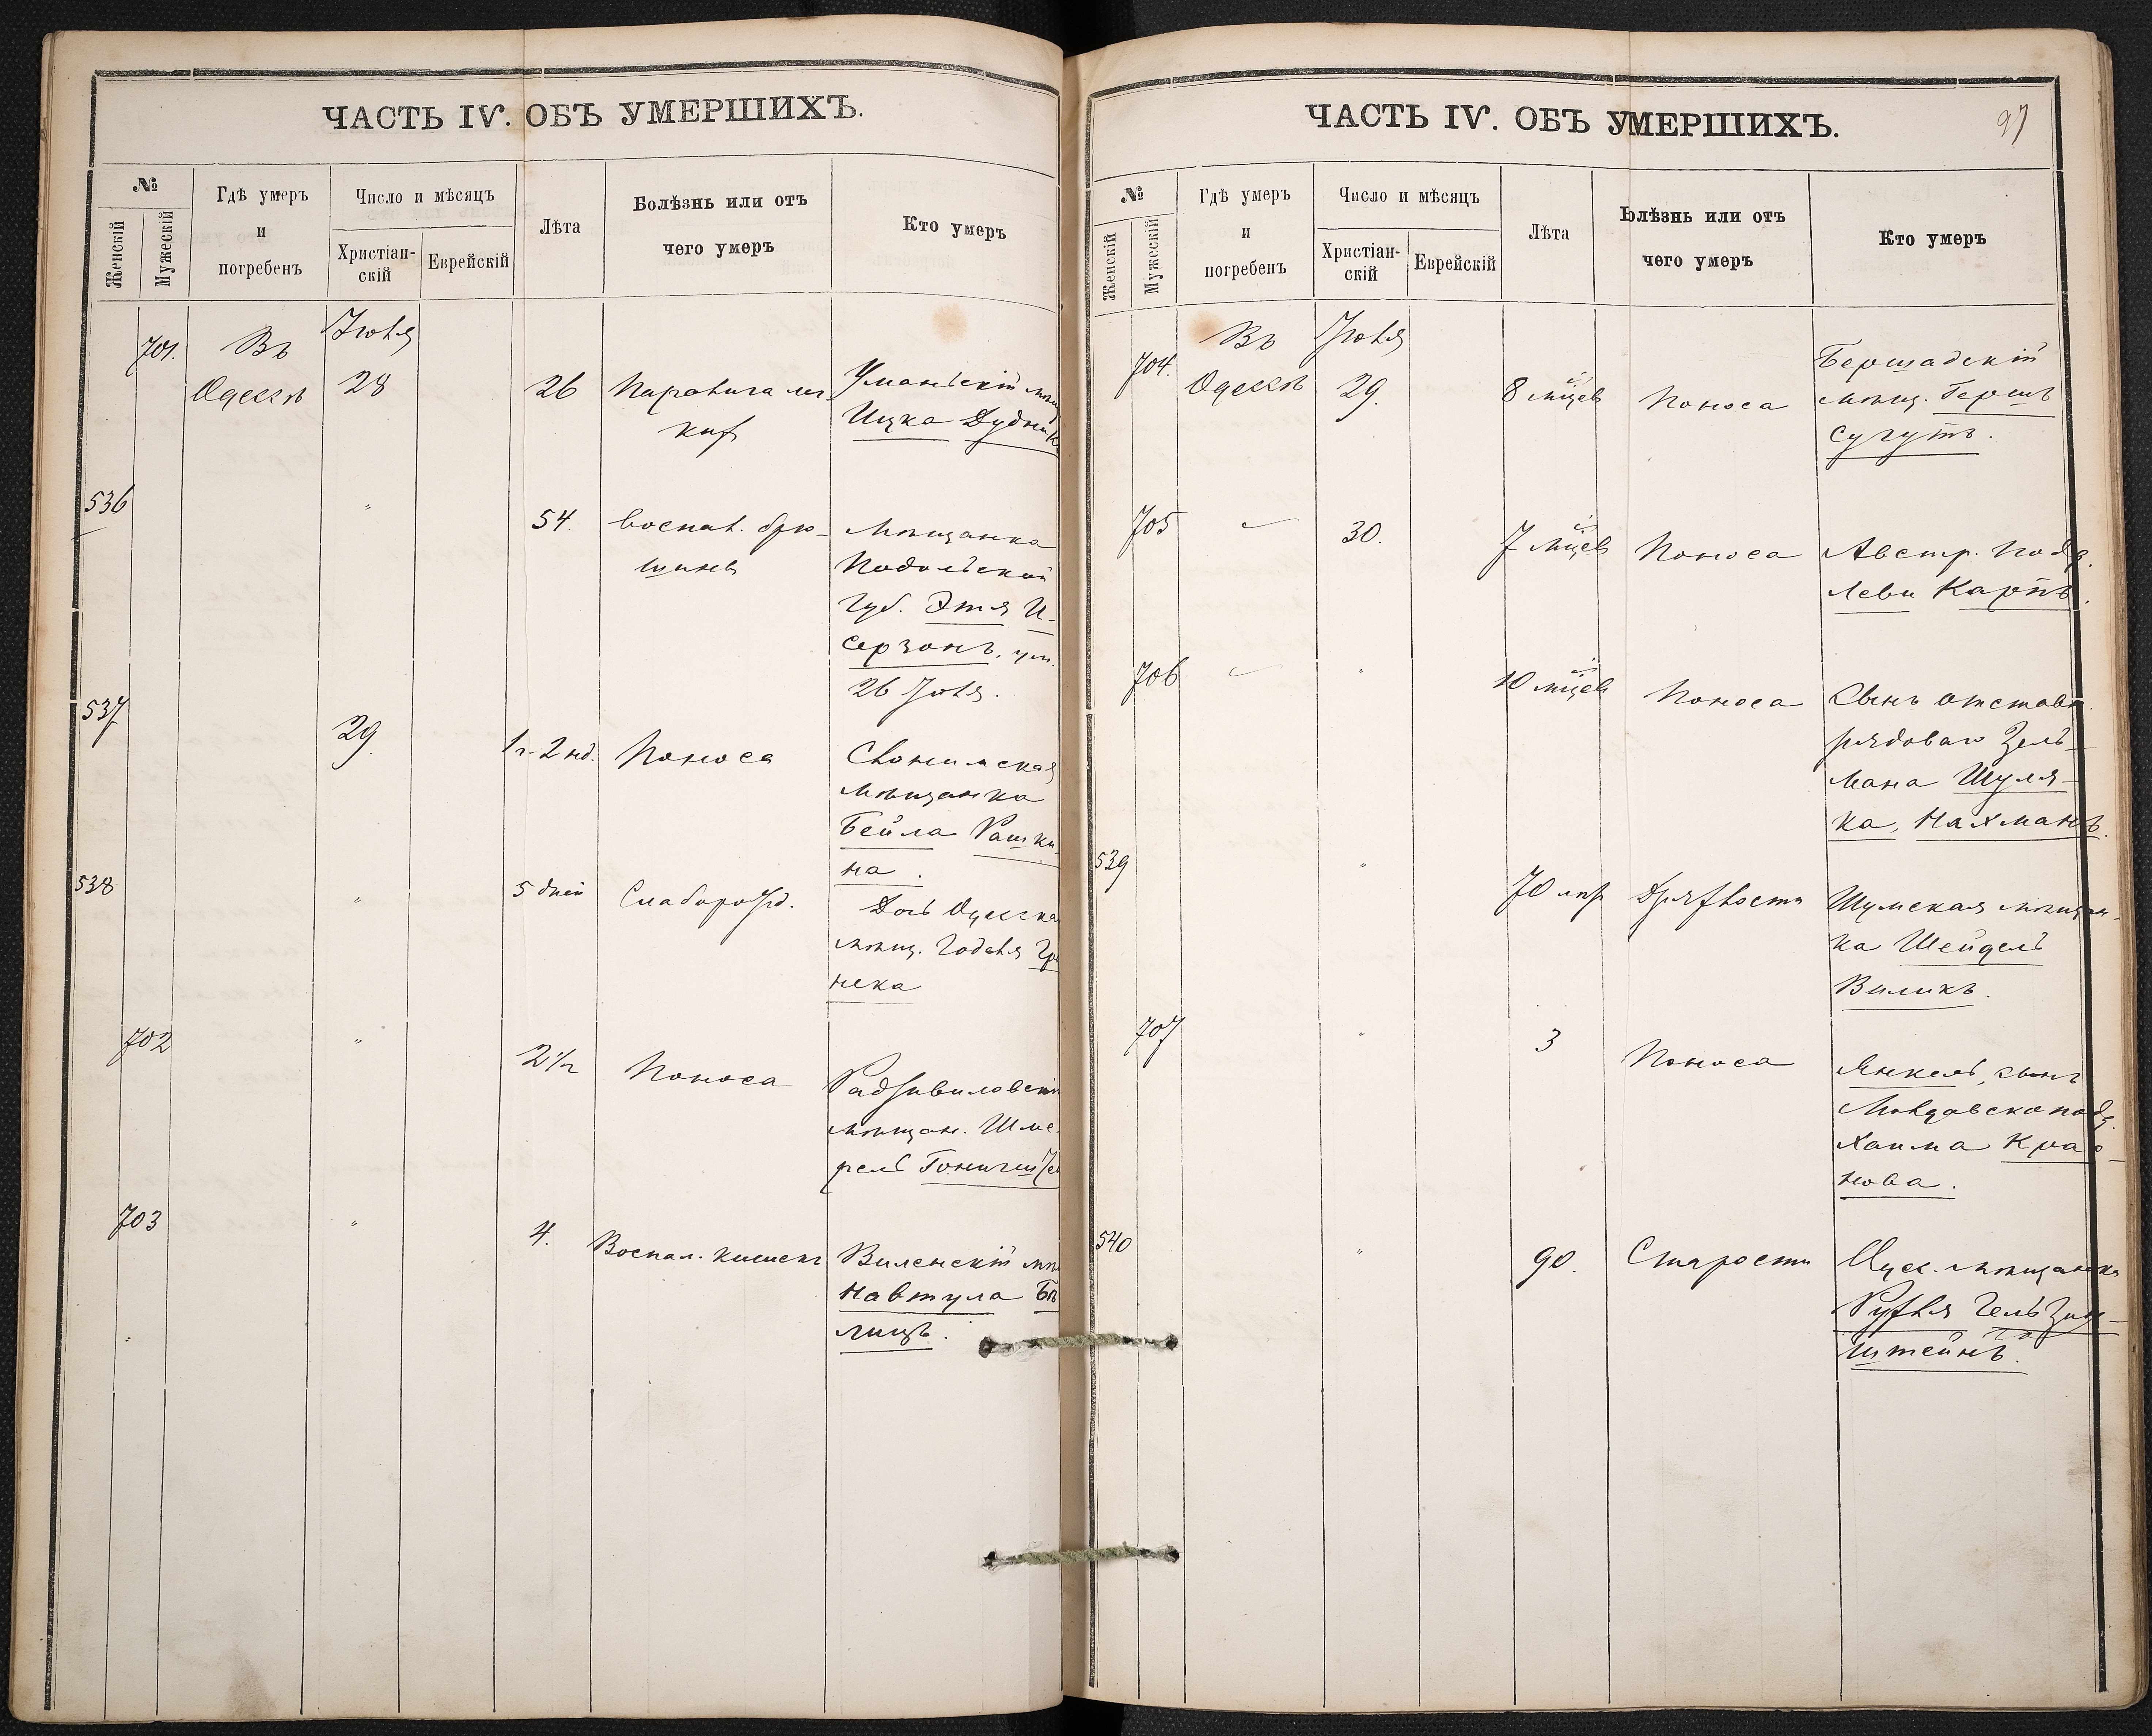 ЧАСТЬ IV. ОБЪ УМЕРШИХЪ.
№
Женскій
Мужескій
Гдѣ умеръ
и
погребенъ
Число и мѣсяцъ
Христіан-
скій
Еврейскій
Лѣта
Болѣзнь или отъ
чего умеръ
Кто умеръ
701. Въ Іюля
Одессѣ 28 26 Паралича лег-
кихъ
Уманьскій мѣщ
Ицка Дудникъ
536 " 54. воспал. брю-
шины
Мѣщанка
Подольской
губ. Этя И-
серзонъ, ум.
26 Іюля.
537 29 1 г. 2 нд. Поноса Слонимская
мѣщанка
Бейла Рашки-
на.
538 " 5 дней Слаборожд. Дочь Одесска
мѣщ. Годеля
нека
702 " 2 1/2 Поноса Радзивиловскій
мѣщан. Шме-
рель
703 " 4. Воспал. кишекъ Виленскій мѣщ
Навтула Бѣ
лицъ.
ЧАСТЬ IV. ОБЪ УМЕРШИХЪ. 97
№
Женскій
Мужескій
Гдѣ умеръ
и
погребенъ
Число и мѣсяцъ
Христіан-
скій
Еврейскій
Лѣта
Болѣзнь или отъ
чего умеръ
Кто умеръ
704. Въ Іюля
Одессѣ 29. 8 мѣцевъ Поноса
Бершадскій
мѣщ. Гершъ
Сугутъ.
705 30. 7 мѣцевъ Поноса Австр. подд.
Леви Карпъ.
706 " 10 мѣцевъ Поноса Сынъ отставн.
рядоваго Зель-
мана Шуля-
ка, Нахманъ.
539 " 70 лѣтъ Дряхлости Шумская мѣщан-
ка Шейдель
Виликъ.
707 " 3 Поноса Янкель, сынъ
Молдавско подд.
Хаима Крас-
нова.
540 " 90. Старости Одес. мѣщанка
Рухля Гельзин-
штейнъ.